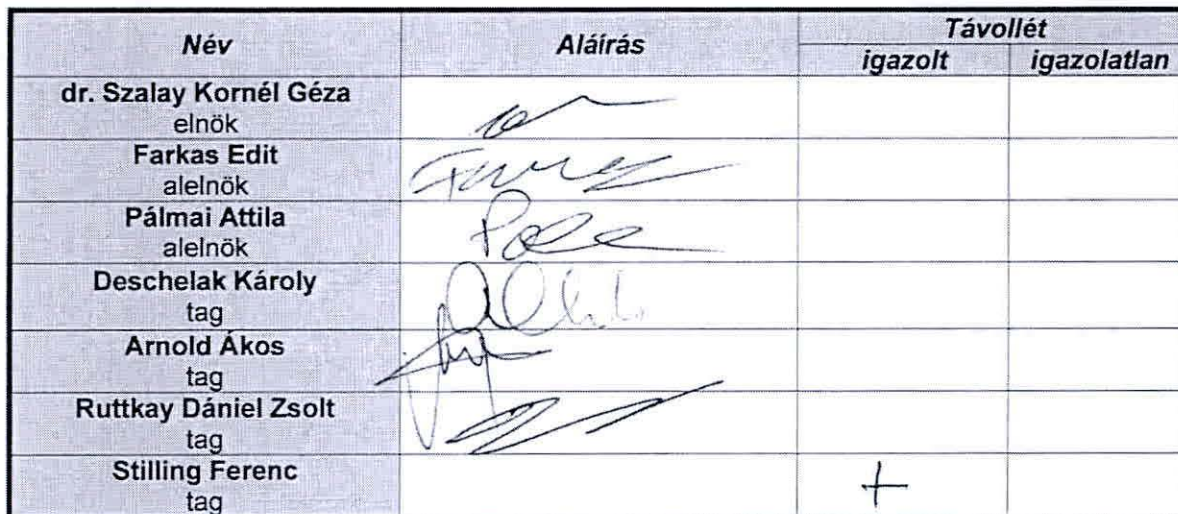 Név Aláírás Távollét
igazolt igazolatlan
dr. Szalay Kornél Géza
elnök
Farkas Edit
alelnök
Pálmai Attila
alelnök
Deschelak Károly
tag
Arnold Ákos
tag
Ruttkay Dániel Zsolt
tag
Stilling Ferenc
tag +